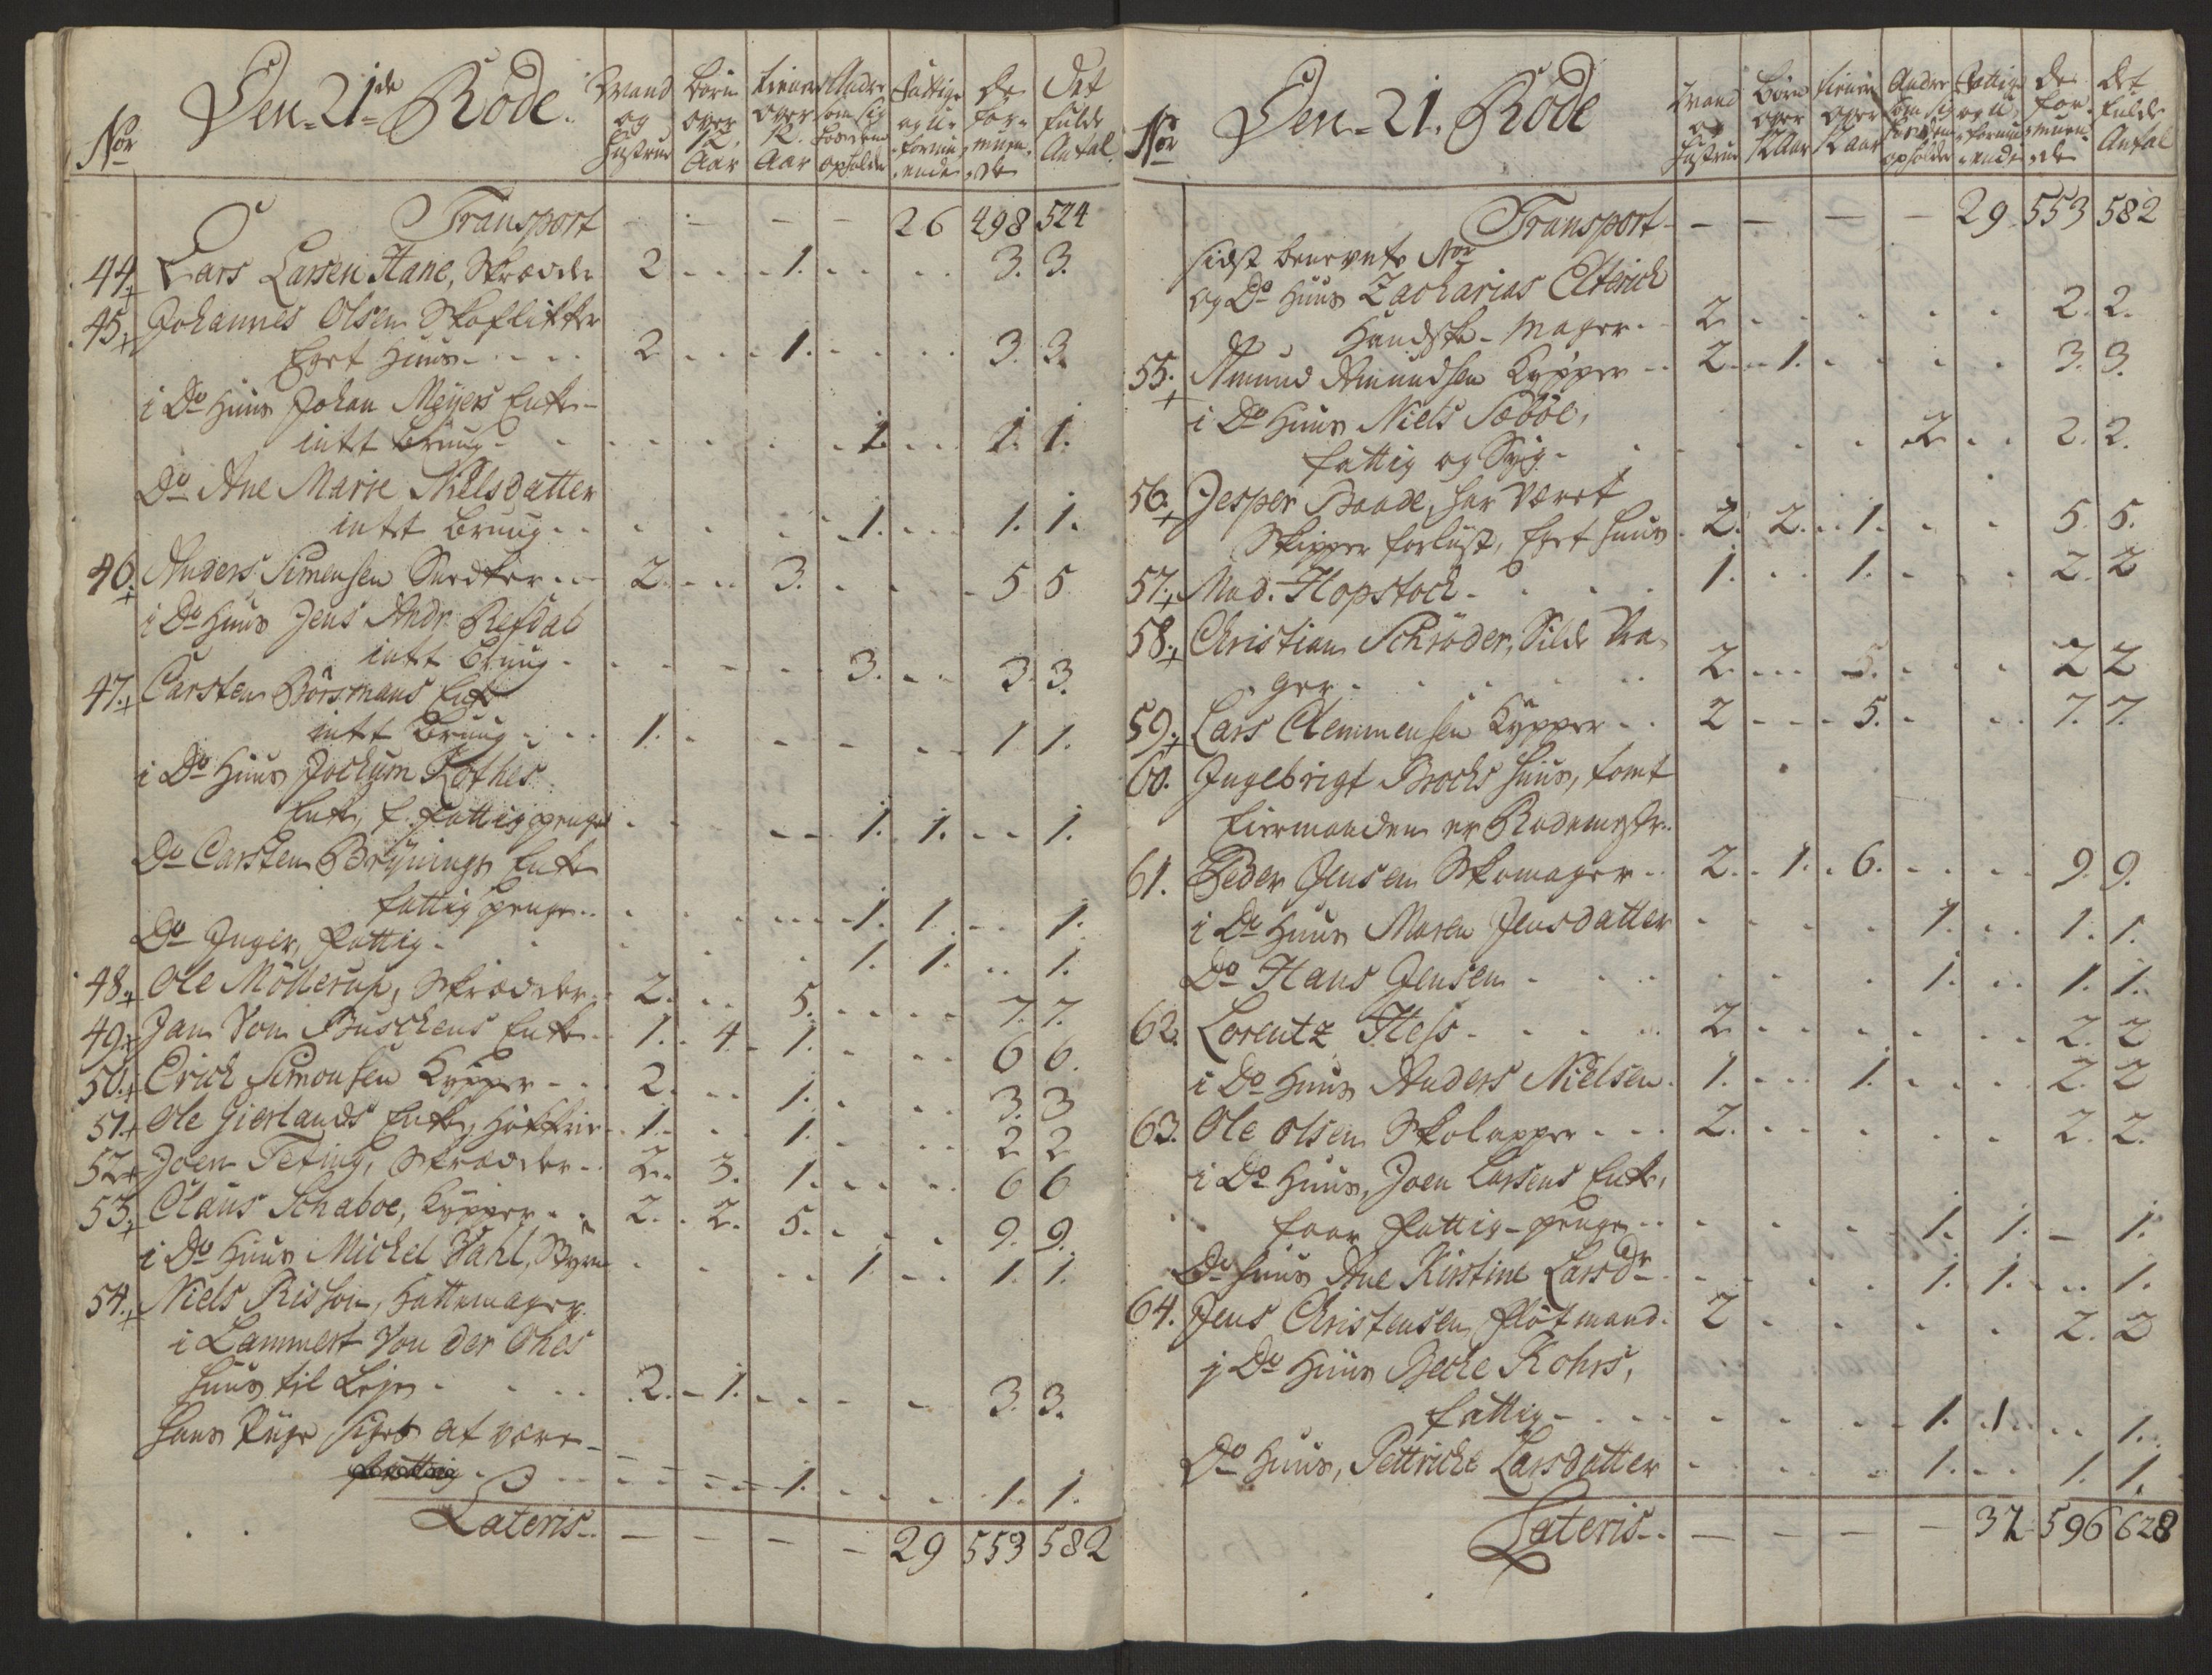 Nor Den 21de Rode. Mand og Hustrue Börn over 12 Aar Tienere over 12. Aar Andre som sig hos dem opholde Fattige og U- formu- ende De For- muen- de Det fulde Antal
Transport - - - - 26 498 524
44. Lars Larsen Hane, Skrædder 2 1. 3. 3.
45. Johannes Olsen Skoflikker
Eget Huus 2 1. 3. 3.
i Do Huus Johan Meyers Enke
intet Bruug 1. 1. 1.
Do Ane Marie Nielsdatter
intet Bruug 1. 1. 1.
46. Anders Simensen Snedker 2 3. 5 5
i Do Huus Jens Andr. Refdal
intet Bruug 3. 3. 3.
47. Carsten Börsmans Enke
intet Bruug 1. 1 1.
i Do Huus Jochum Rothes
Enke, f. Fattigpenge 1. 1. 1.
Do Carsten Brÿnings Enke
fattig penge 1. 1. 1.
Do Inger, Fattig 1. 1. 1.
48. Ole Möllerup, Skrædder 2. 5. 7. 7.
49. Jan Von Buschens Enke 1. 4. 1. 6 6.
50. Erich Simonsen Kypper 2. 1. 3. 3
51. Ole Gierlands Enke, Høkkrie 1. 1. 2 2
52. Joen Teting, Skrædder 2. 3. 1. 6 6
53. Claus Schaboe, Kypper 2. 2. 5. 9. 9.
i Do Huus Michel Vahl, Styrm 1. 1. 1.
54. Niels Risson, Hattemager
i Lammert Von der Ohes
Huus til Leje 2. 1. 3. 3.
Hans Pige siges at være
fattig 1. 1. 1.
Lateris - - - - 29 553 582
Nor Den 21. Rode Mand og Hustrue Börn over 12 Aar Tienere over 12 aar Andre som sig hos dem opholde Fattige og U- formu- ende De For- muen- de Det fulde Antal
Transport - - - - 29 553 582
sidst benevnte Nor
og Do Huus Zacharias Elterich
Handske-Mager 2 2. 2.
55. Amund Amundsen Kypper 2 1. 3. 3.
i Do Huus Niels Sæböe,
fattig og Syg 2 2. 2.
56. Jesper Baade, har Været
Skipper forlist, Eget Huus 2. 2. 1. 5 5.
57. Mad. Hopstock 1. 1. 2. 2
58. Christian Schröder, Silde Vra
ger 2. 5. 2 2
59. Lars Clemmensen Kypper 2 5. 7. 7.
60. Ingebrigt Brochs Huus, tomt
Eiermanden er Rodemestr.
61. Peder Jensen Skomager 2. 1. 6. 9. 9.
i Do Huus Maren Jensdatter 1. 1. 1.
Do Hans Jensen 1. 1. 1.
62. Lorentz Hess 2 2. 2
i Do Huus Anders Nielsen 1. 1. 2. 2
63. Ole Olsen Skolapper 2. 2. 2.
i Do Huus, Joen Larsens Enke,
faar Fattig-penge 1. 1. - 1.
Do Huus Ane Kirstine Larsdr 1. 1. 1.
64. Jens Christensen Flötmand 2 2. 2
i Do Huus Becke Rohrs,
fattig 1. 1 1.
Do Huus, Pettriche Larsdatter 1. 1. 1.
Lateris - - - - 32 596 628